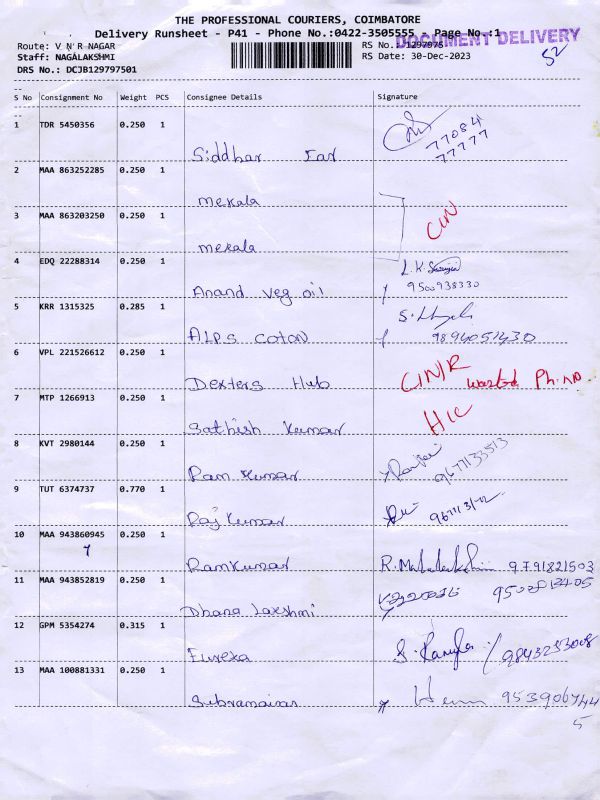 THE PROFESSIONAL COURIERS, COIMBATORE
Delivery Runsheet - P41 - Phone No.:0422-3505555 - Page No.:1
DOCUMENT DELIVERY
Route: V N R NAGAR
RS No.: 129797S
52
Staff: NAGALAKSHMI
RS Date: 30-Dec-2023
DRS No.: DCJB129797501
S No Consignment No Weight PCS Consignee Details Signature
1 TDR 5450356 0.250 1 Siddhar Ear 77084 77777
2 MAA 863252285 0.250 1 Mekala
3 MAA 863203250 0.250 1 Mekala CIN
4 EDQ 22288314 0.250 1 Anand veg oil 9500938330
5 KRR 1315325 0.285 1 ALPS COTON 9894051430
6 VPL 221526612 0.250 1 Dexters Hub CIN/R wanted Ph.no
7 MTP 1266913 0.250 1 Sathish Kumar HIC
8 KVT 2980144 0.250 1 Ram Kumar 9677133513
9 TUT 6374737 0.770 1 Raj Kumar
10 MAA 943860945 0.250 1 Ramkumar 9791821503
7
11 MAA 943852819 0.250 1 Dhana Lakshmi
12 GPM 5354274 0.315 1 Eureka 9843253008
13 MAA 100881331 0.250 1 Subramaiyar 953906744
5